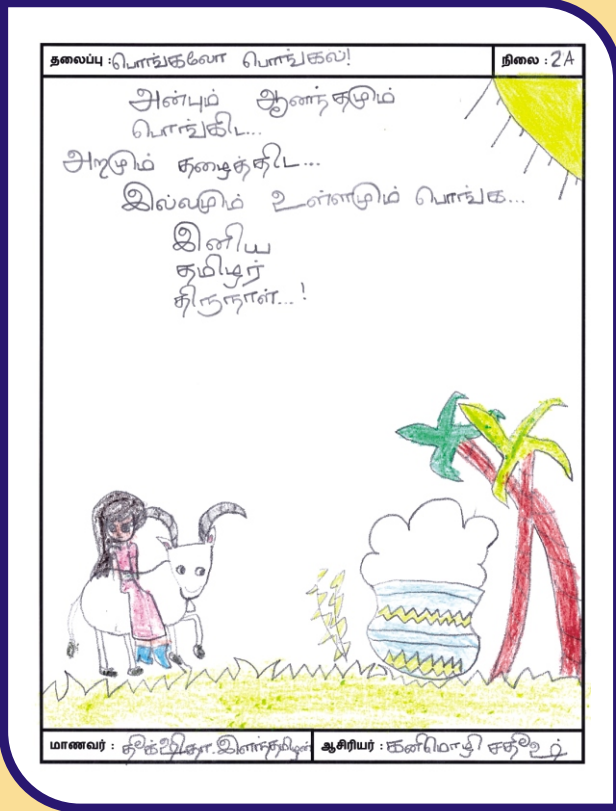 தலைப்பு : பொங்கலோ பொங்கல்!
நிலை : 2A
அன்பும் ஆனந்தமும்
பொங்கிட...
அறமும் தழைத்திட...
இல்லமும் உள்ளமும் பொங்க...
இனிய
தமிழர்
திருநாள்...!
மாணவர் : தீக்‌ஷிதா இளந்தமிழன்
ஆசிரியர் : கனிமொழி சதீஷ்